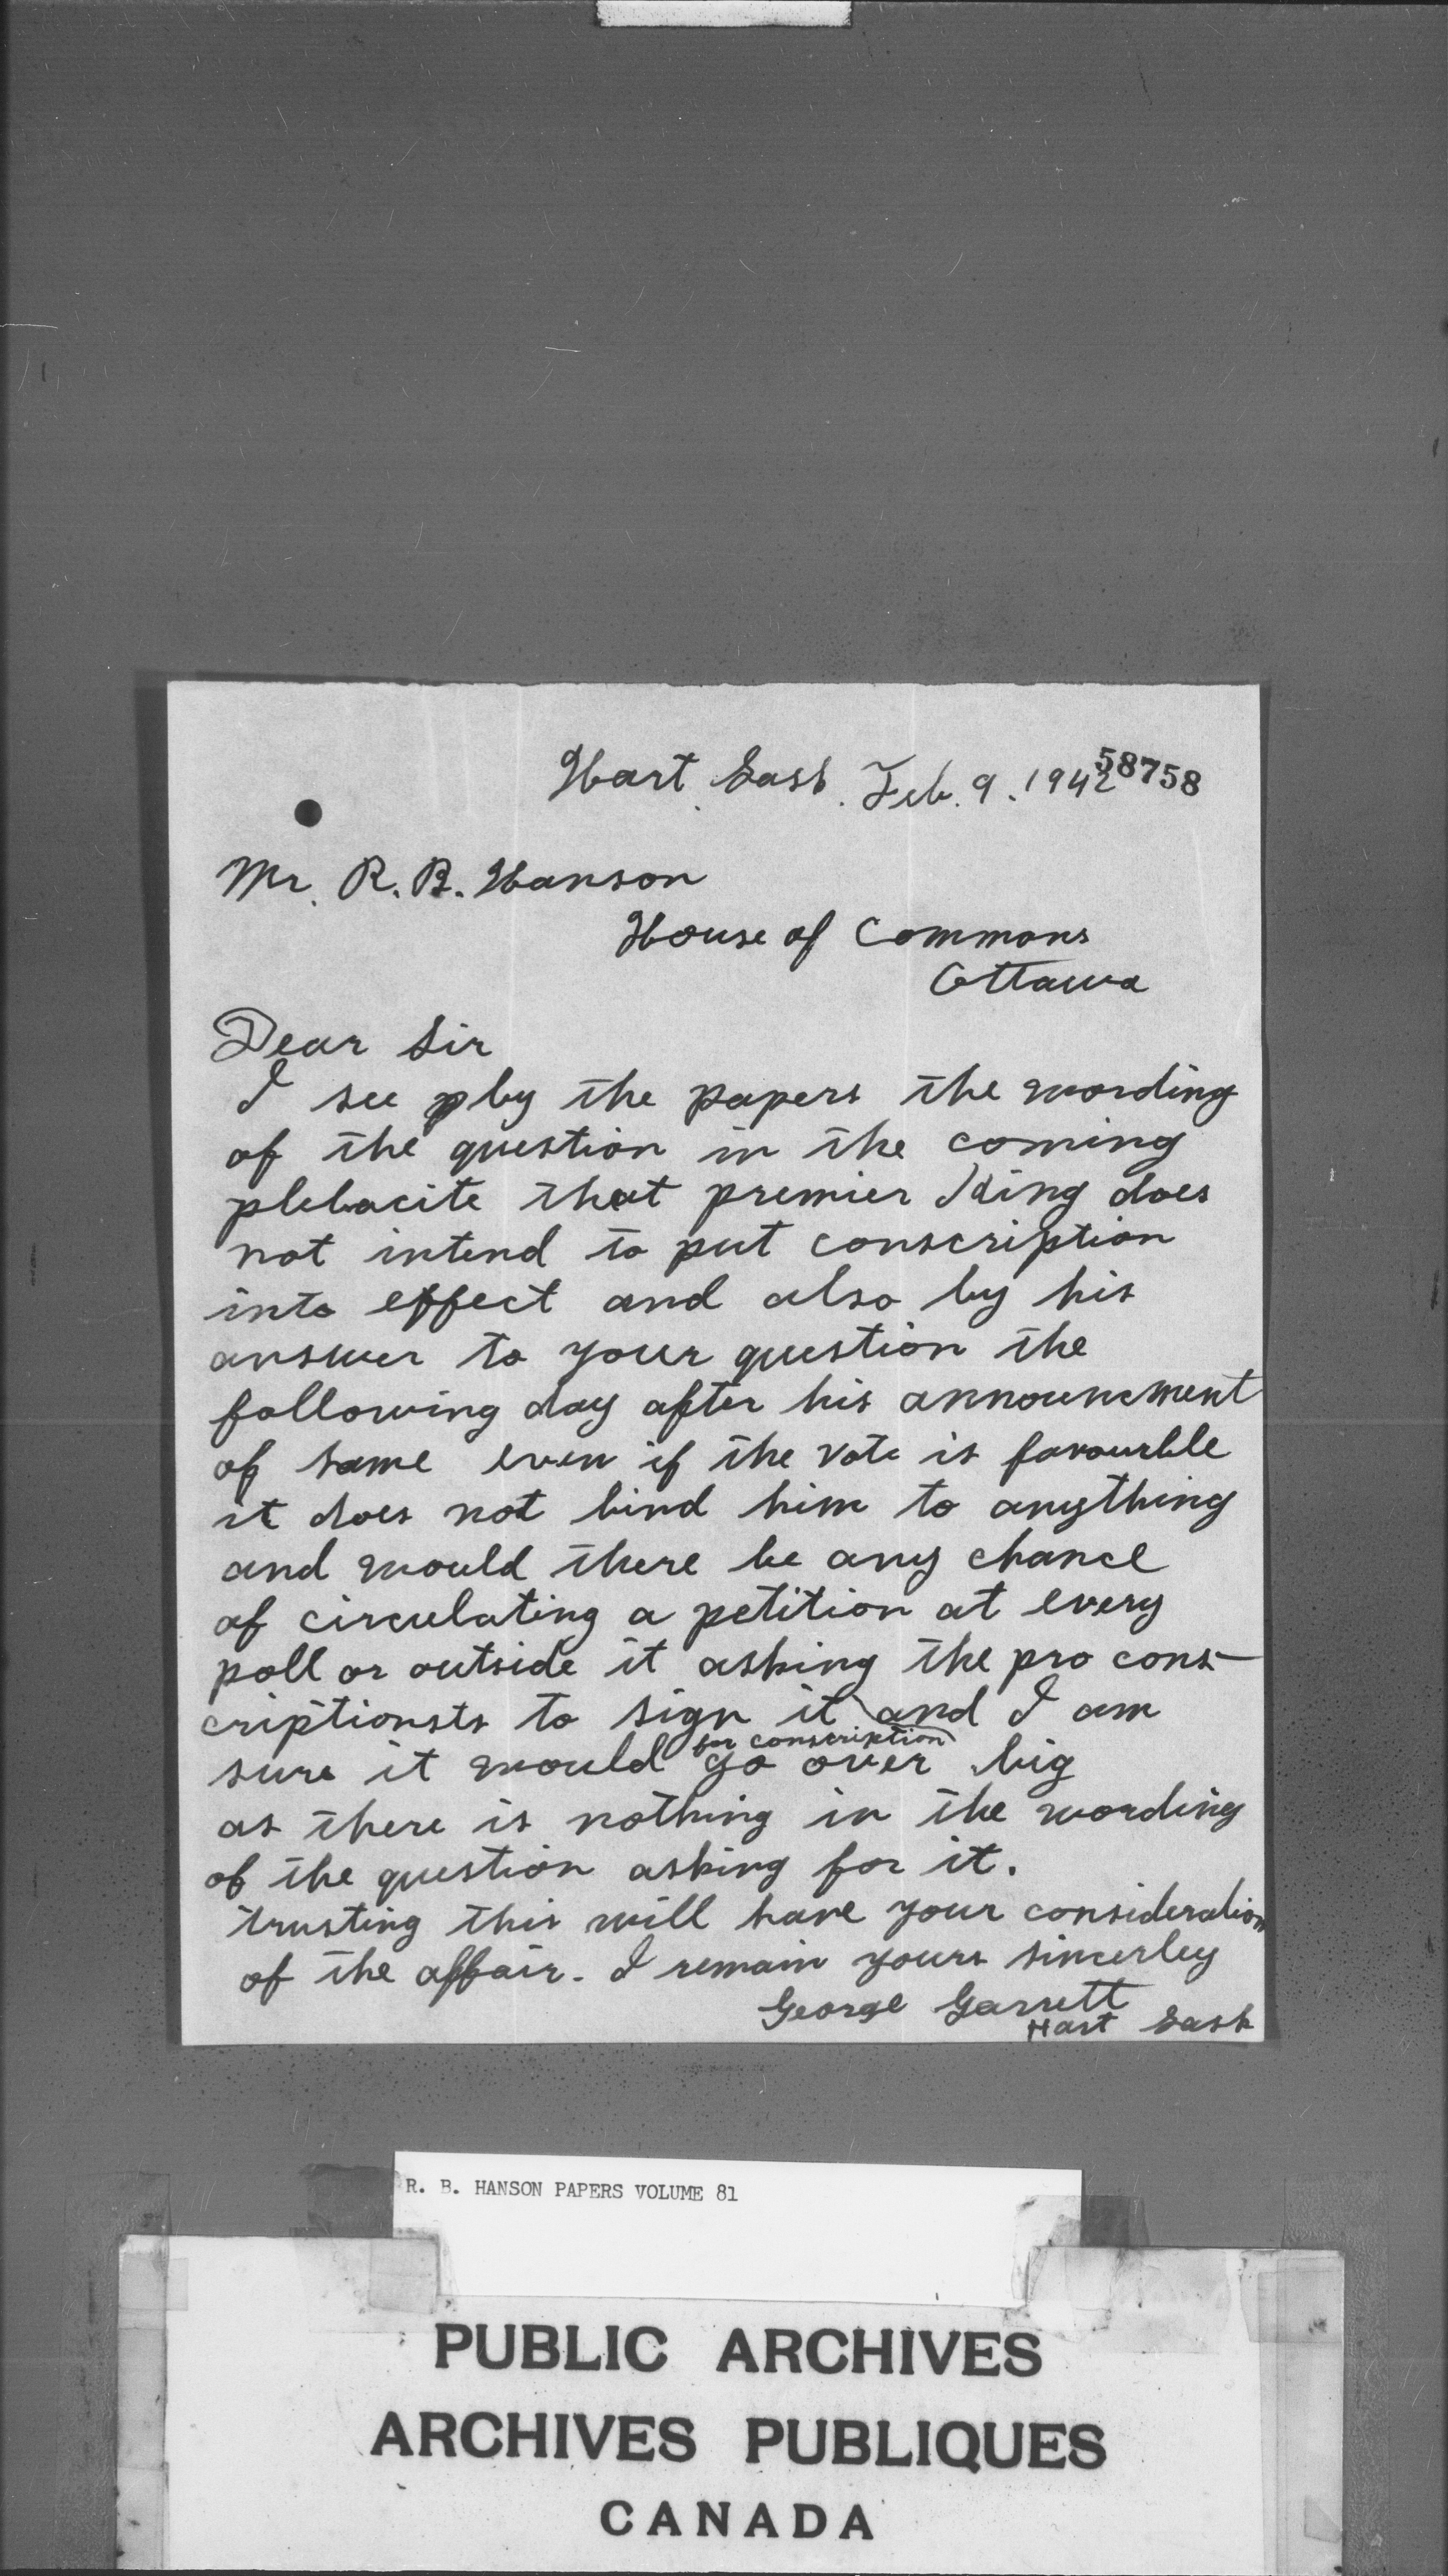 Hart Sask. Feb. 9. 1942
58758
Mr. R. B. Hanson
House of Commons
Ottawa
Dear Sir
I see by the papers the wording
of the question in the coming
plebacite that premier King does
not intend to put conscription
into effect and also by his
answer to your question the
following day after his announcment
of same even if the vote is favourble
it does not bind him to anything
and would there be any chance
of circulating a petition at every
poll or outside it asking the pro cons-
criptionsts to sign it for conscription and I am
sure it would go over big
as there is nothing in the wording
of the question asking for it.
trusting this will have your consideration
of the affair. I remain yours sincerley
George Garrett
Hart Sask
R. B. HANSON PAPERS VOLUME 81
PUBLIC ARCHIVES
ARCHIVES PUBLIQUES
CANADA